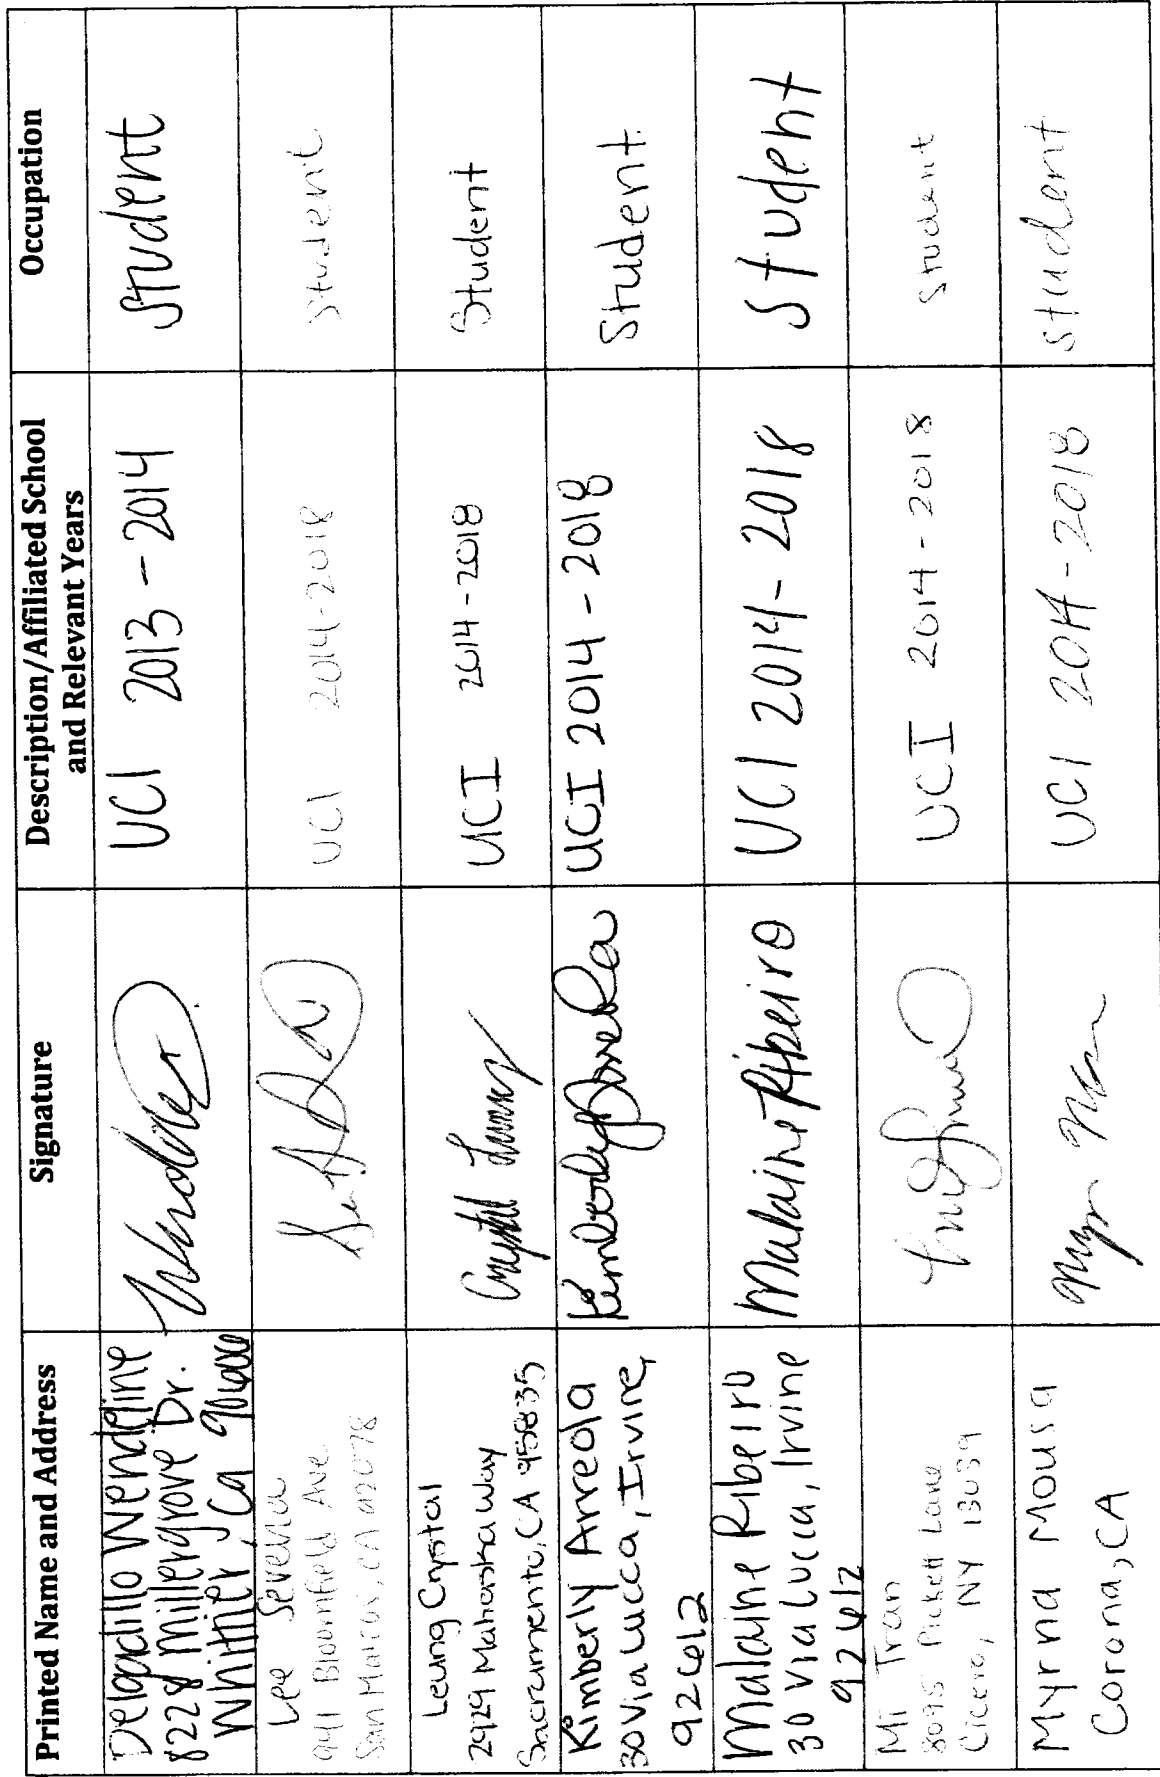 Printed Name and Address
Signature
Description/Affiliated School
and Relevant Years
Occupation
Delgadillo Wendeline
8228 Millergrove Dr.
Whittier, Ca 90606
UCI 2013 - 2014
Student
Lee Serena
941 Bloomfield Ave
San Marcos, CA 92078
UCI 2014-2018
Student
Leung Crystal
2929 Mahoska Way
Sacramento, CA 95835
Crystal Leung
UCI 2014-2018
Student
Kimberly Arreola
30 Via Lucca, Irvine,
92612
Kimberly Arreola
UCI 2014 - 2018
Student
Malaine Ribeiro
30 Via Lucca, Irvine
92612
Malaine Ribeiro
UCI 2014 - 2018
Student
Mi Tran
8095 Pickett Lane
Cicero, NY 13039
UCI 2014-2018
Student
Myrna Mousa
Corona, CA
UCI 2014-2018
student